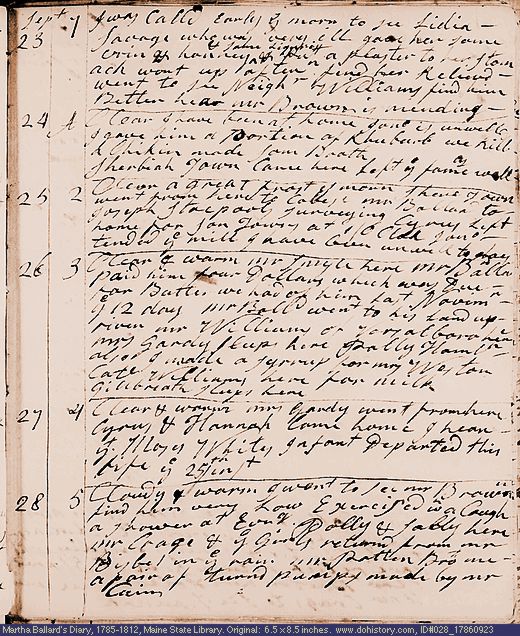 Sept 7 I was Calld Early ys morn to see Lidia
23 Savage who was very ill gave her some
& a plaster to her stom
ach went up after find her Relievd
went to see Neighr Williams find him
Better hear mr Brown is mending
24 A Clear I have been at home Jona is unwell
I gave him a Portion of Rhubarb we killd
a Chikin made some Broath
Shebiah Town Came here
25 2 Clear a great frost ys morn
went from here to mr Ballard to
Joseph Stacpools surveying Cyrus kept
home for Jon Towns at 10 Clok
tended ye mill I have been unwell to day
26 3 Clear & warm mr here mr Ballard
paid him four Dollars which was Due
for Butter we had of him last Novemr
ye 12 day mr Balld went to his Land up
river mr Williams
mrs Gardy sleeps here Polly
also I made a syrrup for mrs Weston
Cate Williams here for milk
Gilbreath sleeps here
27 4 Clear & warm mrs Gardy went from here
Cyrus & Hannah Came home I hear
yt Moses Whites Infant Departed this
Life ye 25th inst
28 5 Cloudy & warm I went to see mr Brown
find him very Low Exercised wt a Cough
a shower at Evng Polly & here
mr Gage & ye Girls returnd from mr
in ye rain mr Patten Bro me
a pair of turnd pumps made by mr
Cain
Martha Ballard's Diary, 1785-1812, Maine State Library. Original: 6.5 x 8.5 inches. www.dohistory.com, ID#028_17860923